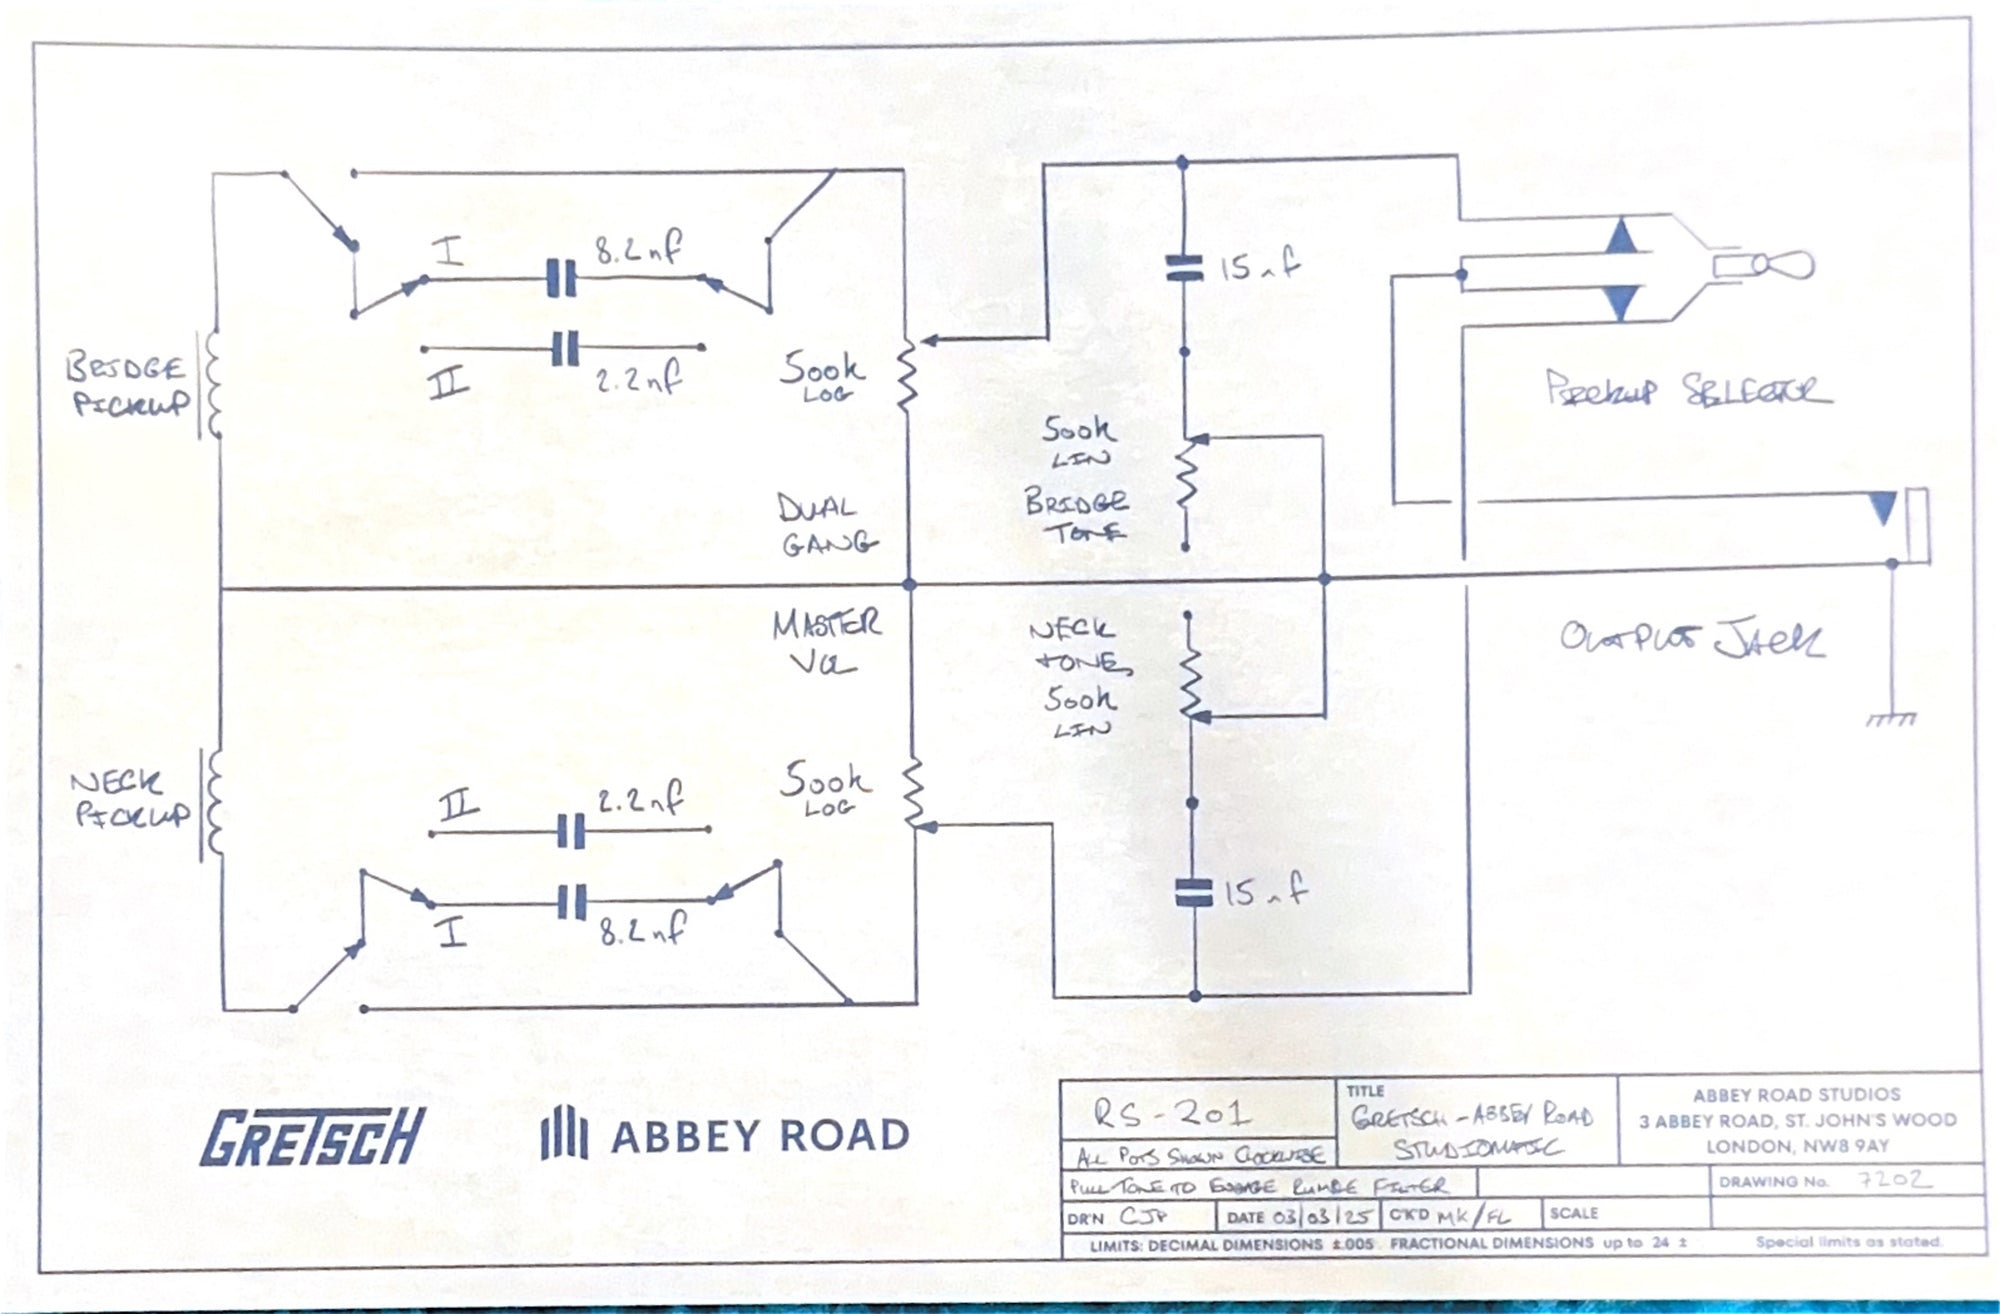 I
8.2nf
BRIDGE
PICKUP
II
2.2nf
500k
LOG
15nf
PICKUP SELECTOR
500k
LIN
BRIDGE
TONE
DUAL
GANG
MASTER
VOL
NECK
TONE,
500k
LIN
OUTPUT JACK
NECK
PICKUP
II
2.2nf
500k
LOG
I
8.2nf
15nf
GRETSCH
ABBEY ROAD
RS-201
ALL POTS SHOWN CLOCKWISE
PULL TONE TO ENGAGE RUMBLE FILTER
TITLE
GRETSCH - ABBEY ROAD
STUDIOMATIC
ABBEY ROAD STUDIOS
3 ABBEY ROAD, ST. JOHN'S WOOD
LONDON, NW8 9AY
DRAWING No. 7202
DR'N CJP
DATE 03/03/25
CKD MK/FL
SCALE
LIMITS: DECIMAL DIMENSIONS ±.005 FRACTIONAL DIMENSIONS up to 24 ± Special limits as stated.